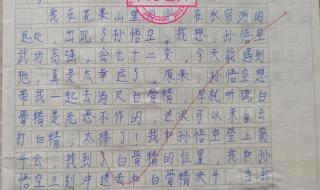 我在花果山里
在水帘河的
远处,出现了孙悟空。我想:孙悟空
武功高强,会七十二变,今天能遇到
他,真是太幸运了。原来,孙悟空想
带我一起去消灭白骨精。早就听说白
骨精是无恶不作的,这次可以亲自去
打白精,太棒了!我和孙悟空登上筋
斗云,找到了白骨精的位置,我和孙
悟空立刻冲进去和白骨精决斗。当我